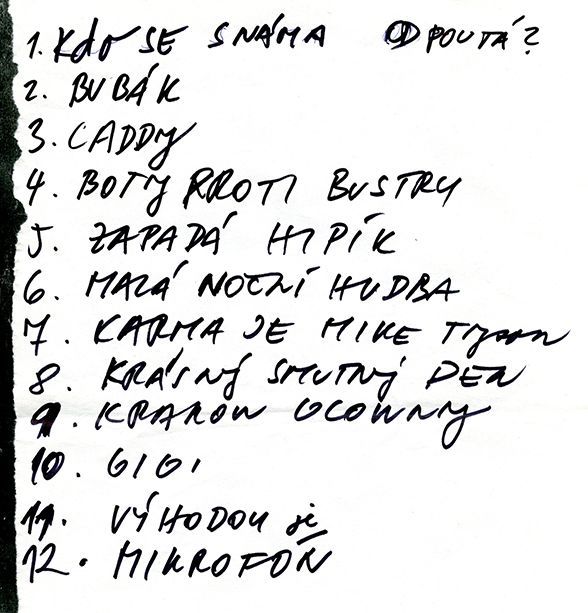 1. Kdo SE S NÁMA ODPOUTÁ?
2. BUBÁK
3. CADDY
4. BOTY PROTI BUSTRU
5. ZAPADÁ HIPÍK
6. MALÁ NOČNÍ HUDBA
7. KARMA JE MIKE Tyson
8. KRÁSNÝ SMUTNÝ DEN
9. KRAKOW GLOWNY
10. GIGI
11. VÝHODOU je
12. MIKROFÓN